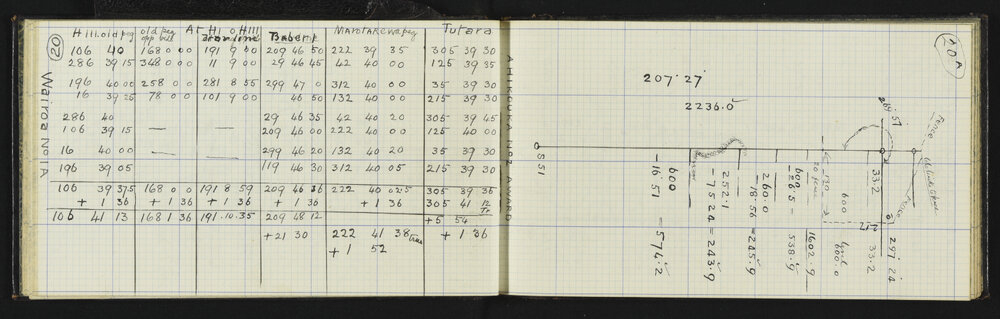 20
Wairoa No 1A
Hill old peg old peg opp bell At Hi o Hill Taberk Marotarewa peg Tutara
106 40 168 0 0 191 9 00 209 46 50 222 39 35 305 39 30
286 39 15 348 0 0 11 9 00 29 46 45 42 40 00 125 39 35
196 40 00 258 0 0 281 8 55 299 47 0 312 40 00 35 39 30
16 39 25 78 0 0 101 9 00 46 50 132 40 00 215 39 30
286 40 29 46 35 42 40 20 305 39 45
106 39 15 — — 209 46 00 222 40 00 125 40 00
16 40 00 — — 299 46 20 132 40 20 35 39 30
196 39 05 119 46 30 312 40 05 215 39 30
106 39 37.5 168 0 0 191 8 59 209 46 36 222 40 02.5 305 39 36
+ 1 36 + 1 36 + 1 36 + 1 36 + 1 36 305 41 12 Tr
106 41 13 168 1 36 191.10.35 209 48 12 +5 54
+21 30 222 41 38 true + 1 36
+ 1 52
AHIKOUKA No 2 AWARD
20A
207.27
2236.0
S51
600
-16 51 = 574.2
252.1
-75 24 = 243.9
260.0
-18.56 = 245.9
600.5
538.9
20 free
130
600
1602.9
600.0
33.2
33.2
269.57
297 24
Fence